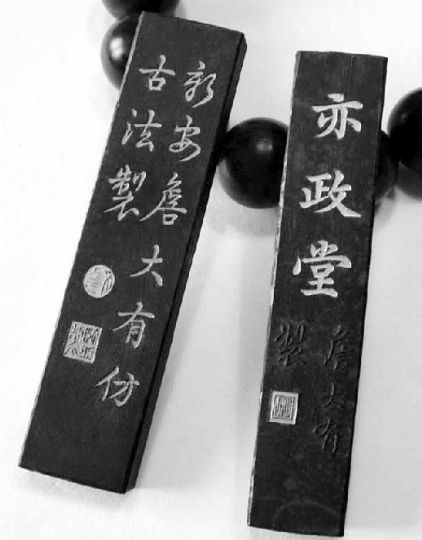 新安詹大有仿
古法製
亦政堂
詹大有
製